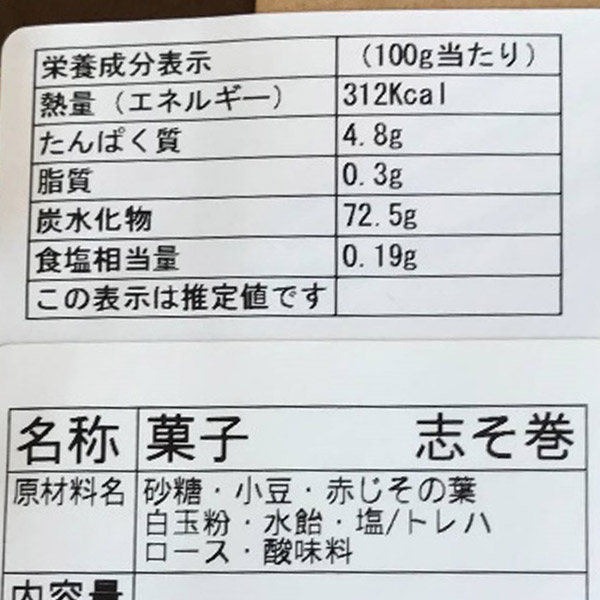 栄養成分表示 (100g当たり)
熱量(エネルギー) 312Kcal
たんぱく質 4.8g
脂質 0.3g
炭水化物 72.5g
食塩相当量 0.19g
この表示は推定値です
名称 菓子 志そ巻
原材料名 砂糖・小豆・赤じその葉
白玉粉・水飴・塩/トレハ
ロース・酸味料
内容量